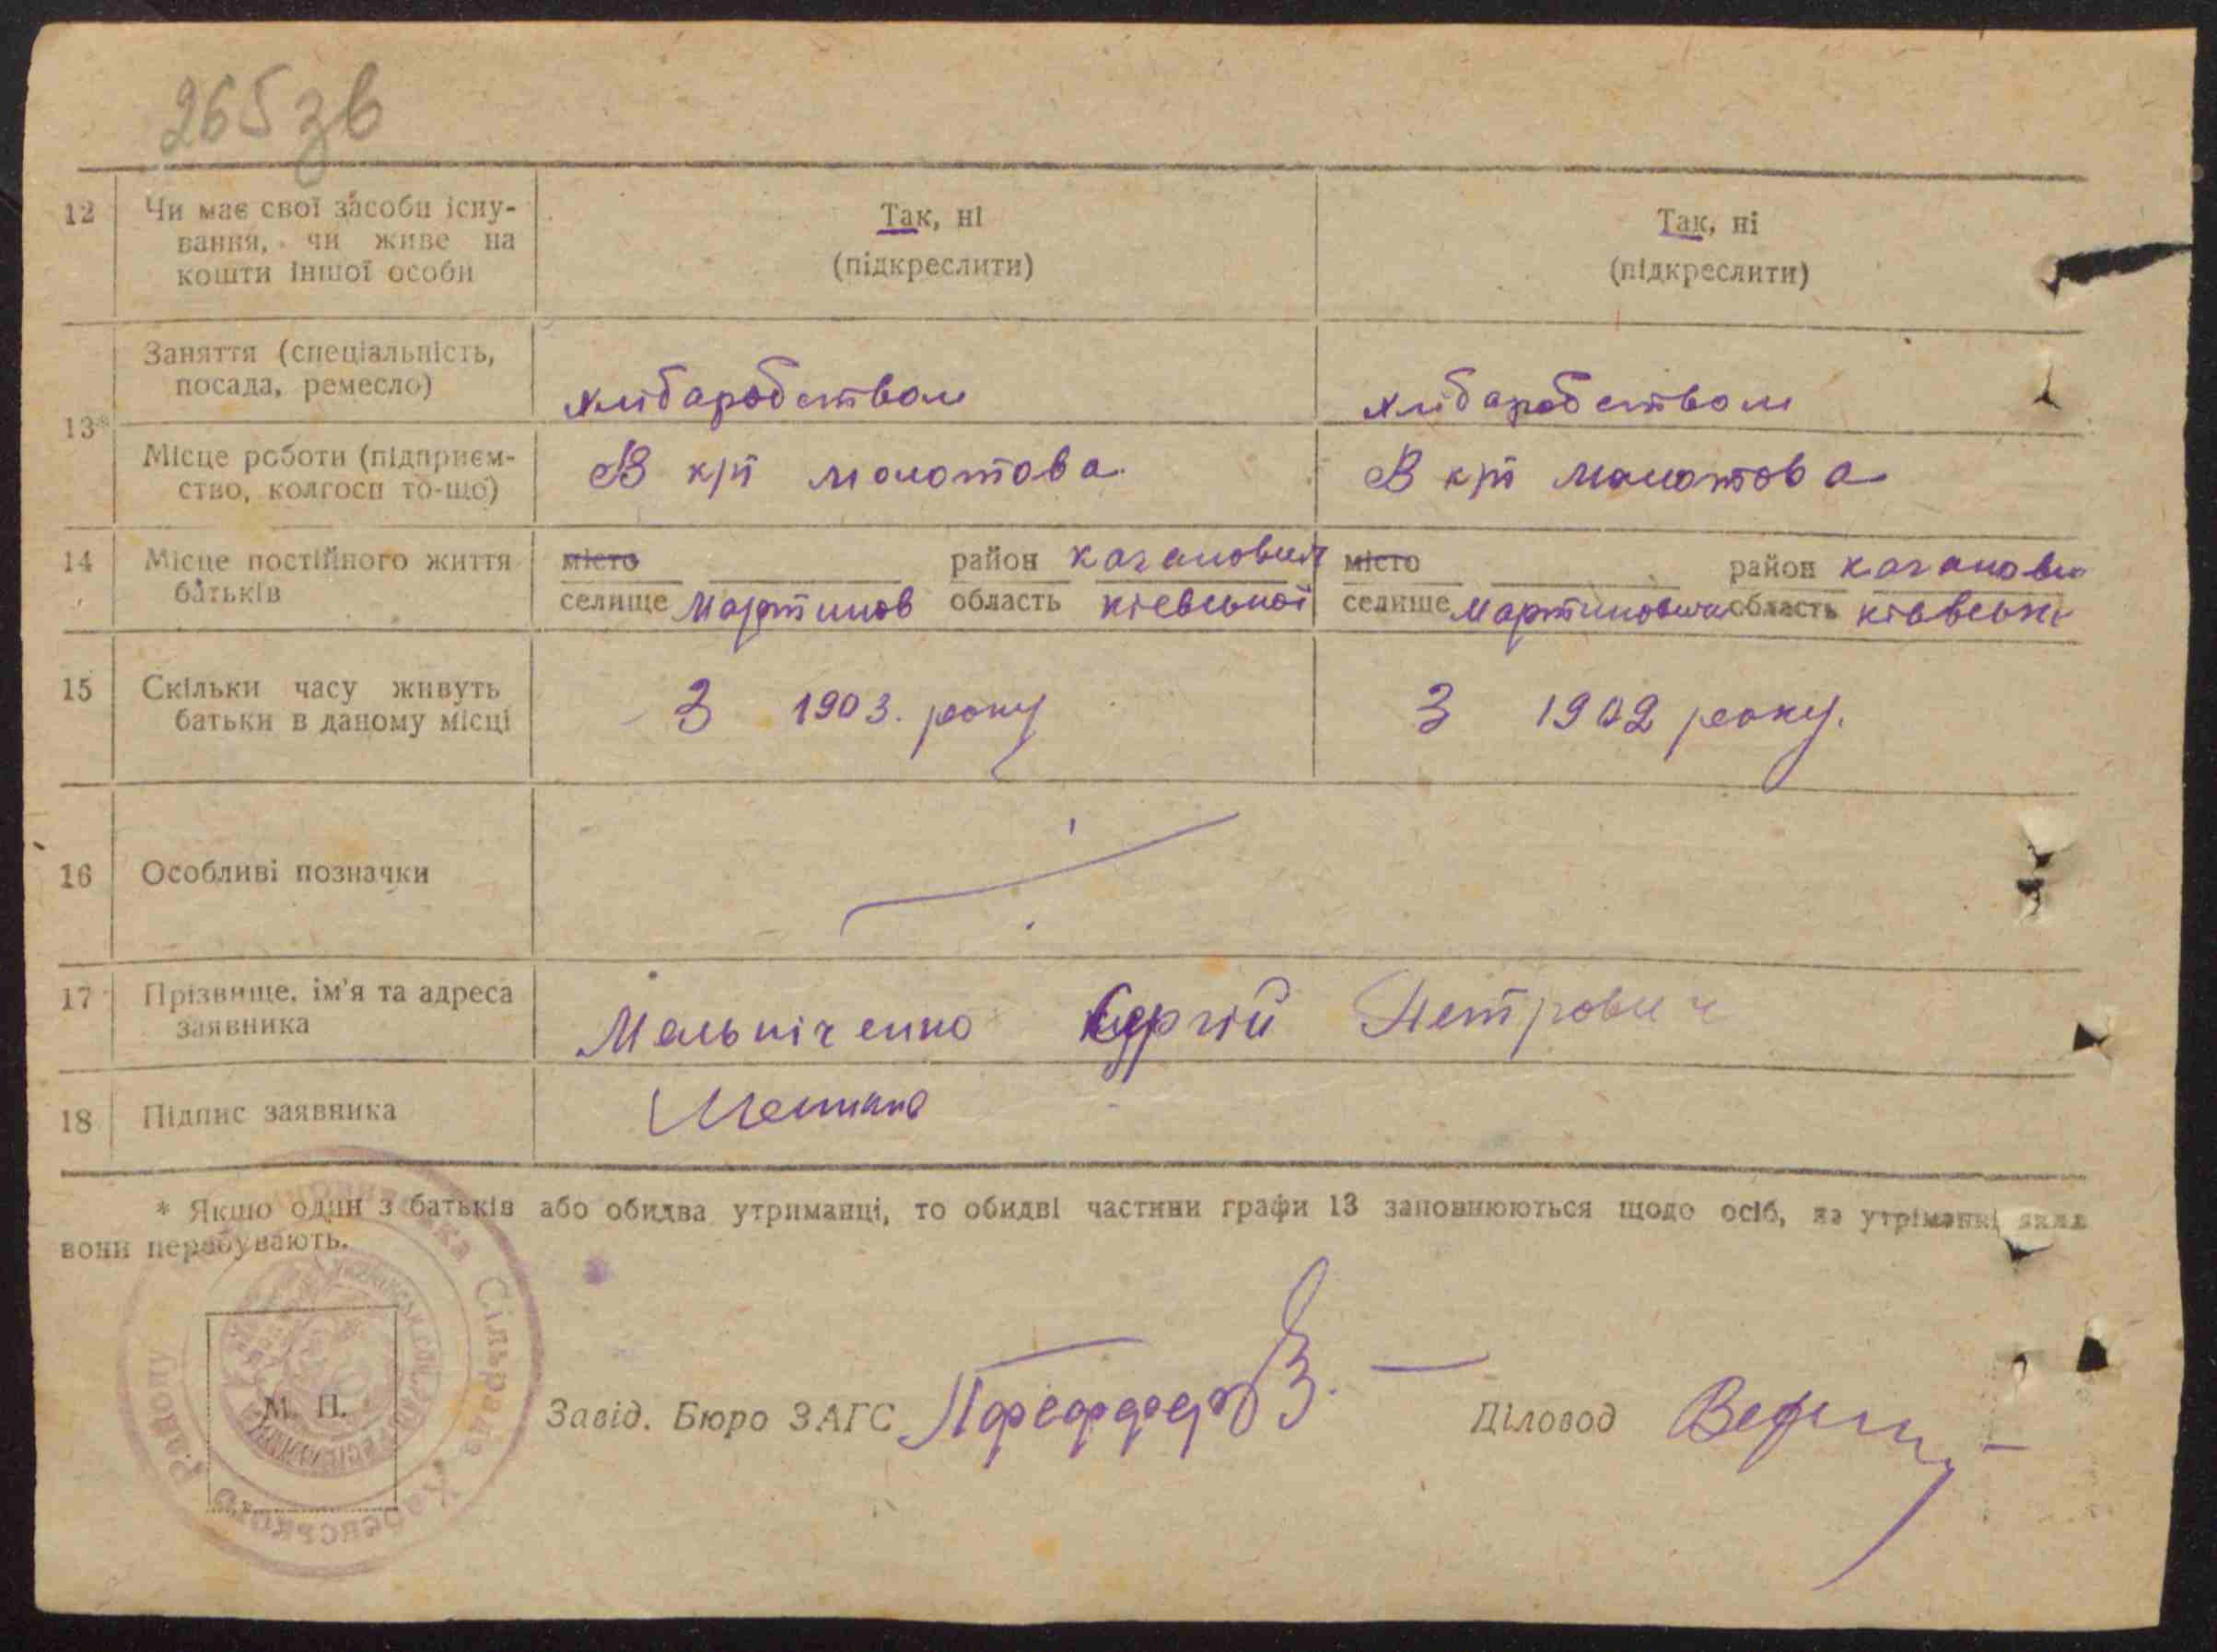 265 зв
12 Чи має свої засоби існу- Так, ні Так, ні
вання, чи живе на (підкреслити) (підкреслити)
кошти іншої особи
Заняття (спеціальність,
посада, ремесло) хлібаробством хлібаробством
13*
Місце роботи (підприєм- В к/г молотова В к/г молотова
ство, колгосп то-що)
14 Місце постійного життя місто район каганович місто район каганович
батьків селище Мартинов область кіевської селище Мартиновичи область
15 Скільки часу живуть З 1903. року З 1902 року.
батьки в даному місці
16 Особливі позначки
17 Прізвище, ім'я та адреса
заявника Мельніченко Сергій Петрович
18 Підпис заявника
* Якщо один з батьків або обидва утриманці, то обидві частини графи 13 заповнюються щодо осіб, на утріманкі яких
вони перебувають.
Сільрада
Району
М. П.
Завід. Бюро ЗАГС Діловод